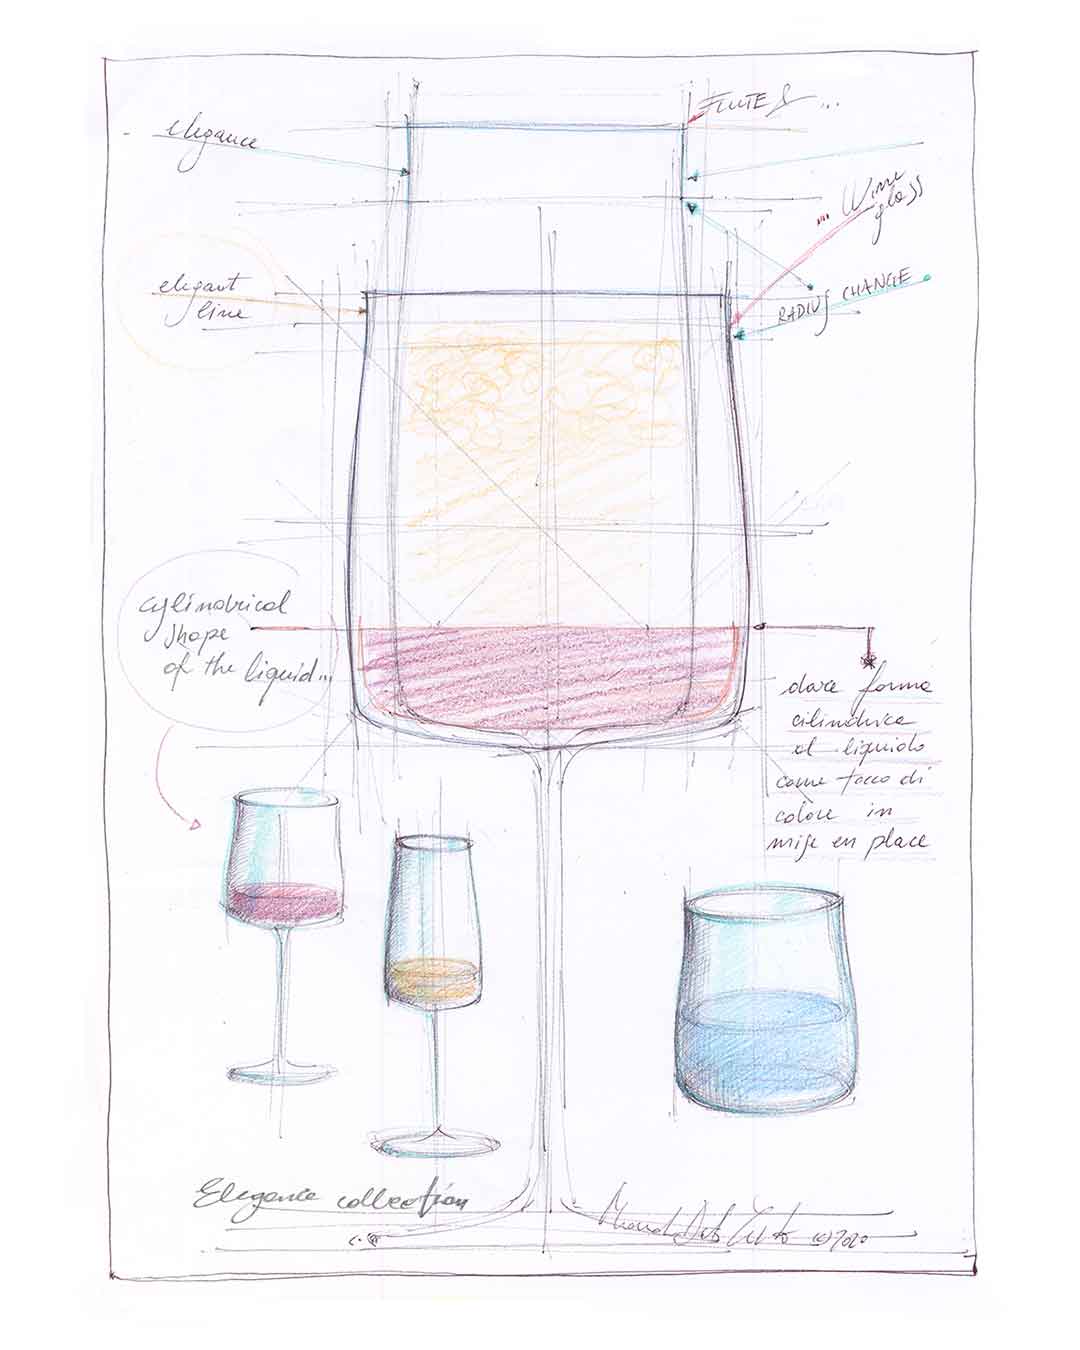 elegance
FLUTE & ...
... Wine
glass
elegant
line
RADIUS CHANGE
cylindrical
shape
of the liquid...
dare forma
cilindrica
al liquido
come tocco di
colore in
mise en place
Elegance collection
(c) 2020